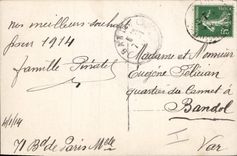 nos meilleurs souhaits
pour 1914
famille
4/1/14
71 Bd de Paris Mlle
Madame et Monsieur
Eugène Félician
quartier du Cannet à
Bandol
Var